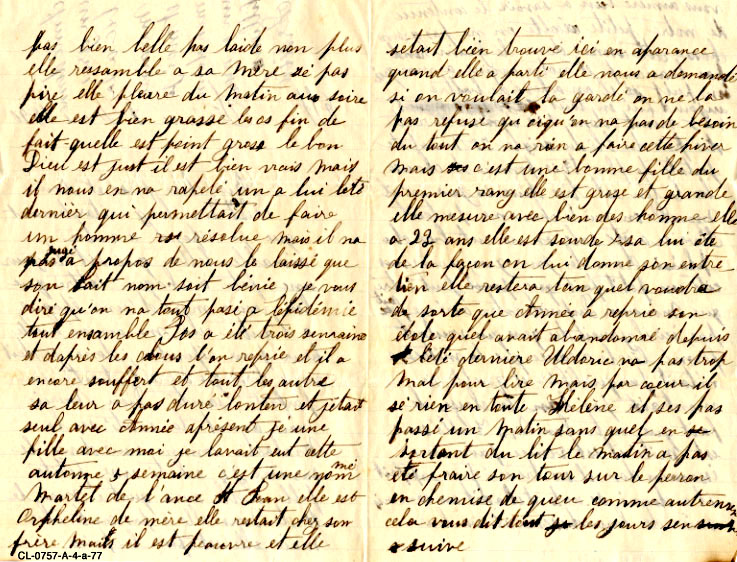 pas bien belle pas laide non plus
elle ressamble a sa mère sé pas
pire elle pleure du matin aux soire
elle est bien grasse les os fin de
fait quelle est point grose le bon
Dieu est just il est bien vrais mais
il nous en na rapelé un a lui lété
dernièr qui permettait de faire
un homme résolue mais il na
pas jugé a propos de nous le laissé que
son sait nom soit bénie, je vous
diré qu'on na tout pasé a lépidémie
tout ensamble Jos a été trois semaine
et daprès les clous l'on reprie et il a
encore souffert et tout les autre
sa leur a pas duré lonten et j'étais
seul avec Année aprèsent jé une
fille avec moi je lavait eut cette
automne 5 semaine c'est une nommé
Martel de l'ance St Jean elle est
orpheline de mère elle restait cher son
frère maits il est peauvre et elle
CL-0757-A-4-a-77
sétait bien trouvé ici en aparance
quand elle a parti elle nous a demandé
si on voulait la gardé on ne la
pas refusé qu oiqu'on na pas de besoin
du tout on na rien a faire cette hiver
mais c'est une bonne fille du
premier rang elle est grose et grande
elle mesure avec bien des homme elle
a 23 ans elle est sourde sa lui ète
de la façon on lui donne son entre
tien elle restera tan quel voudra
de sorte que Année a reprie son
école quel avait abandonné depuis
lété dernière Aldoric na pas trop
mal pour lire mais par coeur il
sé rien en toute Hélène il ses pas
passé un matin sans quel en
sortant du lit le matin a pas
été fraire son tour sur le peron
en chemise de queu comme autrement
cela vous dit tout les jours sen
suive